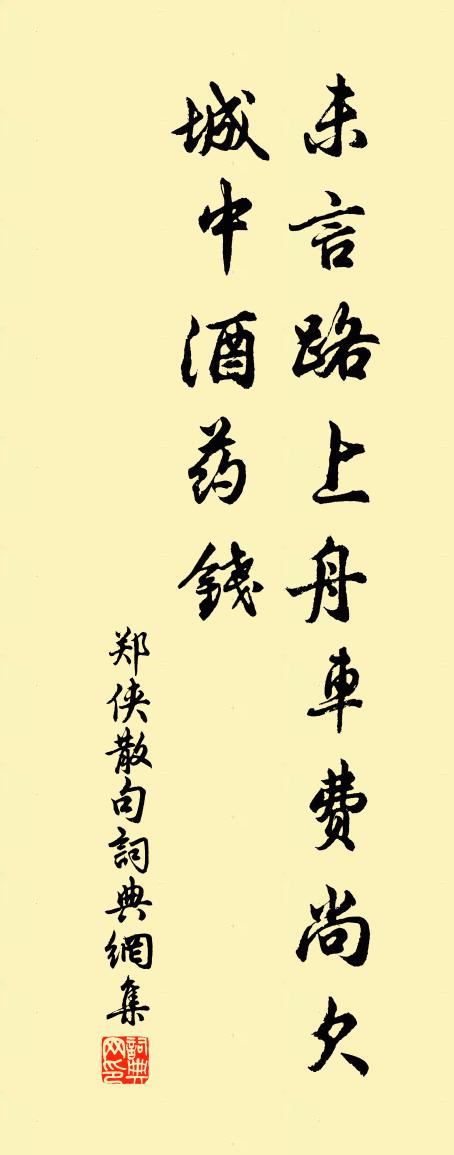 未言路上舟車費尚欠
城中酒药錢
郑侠散句詞典網集
詞典网印